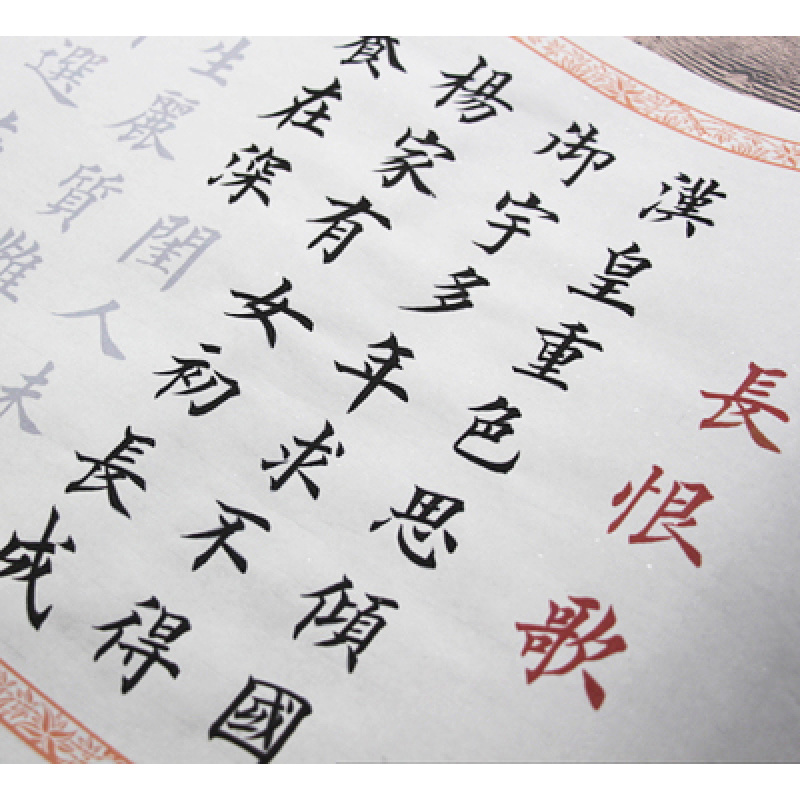 長恨歌
漢皇重色思傾國
御宇多年求不得
楊家有女初長成
養在深閨人未
生麗質
選